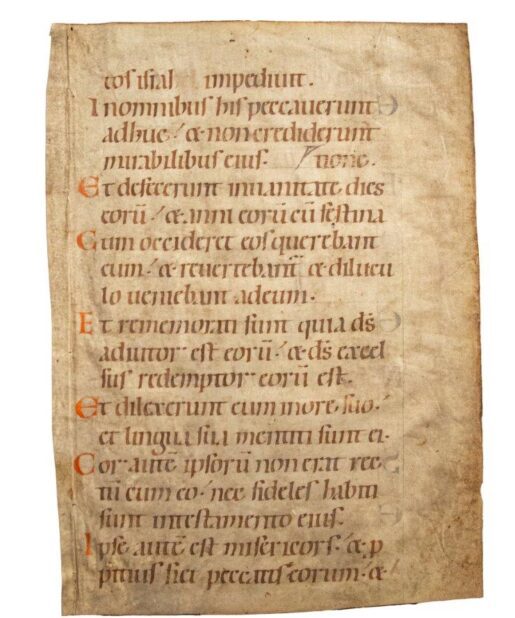 tos isrl impediuit.
In omnibus his peccauerunt
adhuc / & non crediderunt
mirabilibus eius. / tione.
Et defecerunt in uanitate dies
eorū / & anni eorū cū festina
Cum occideret eos querebant
eum / & reuertebant̄ & dilucu
lo ueniebant ad eum.
Et rememorati sunt quia ds̄
adiutor est eorū / & ds̄ excel
sus redemptor eorū est.
Et dilexerunt eum in ore suo /
et lingua sua mentiti sunt ei.
Cor autē ipsorū non erat rec
tū cum eo / nec fideles habiti
sunt in testamento eius.
Ipse autē est misericors / & p
pitius fiet peccatis eorum. &